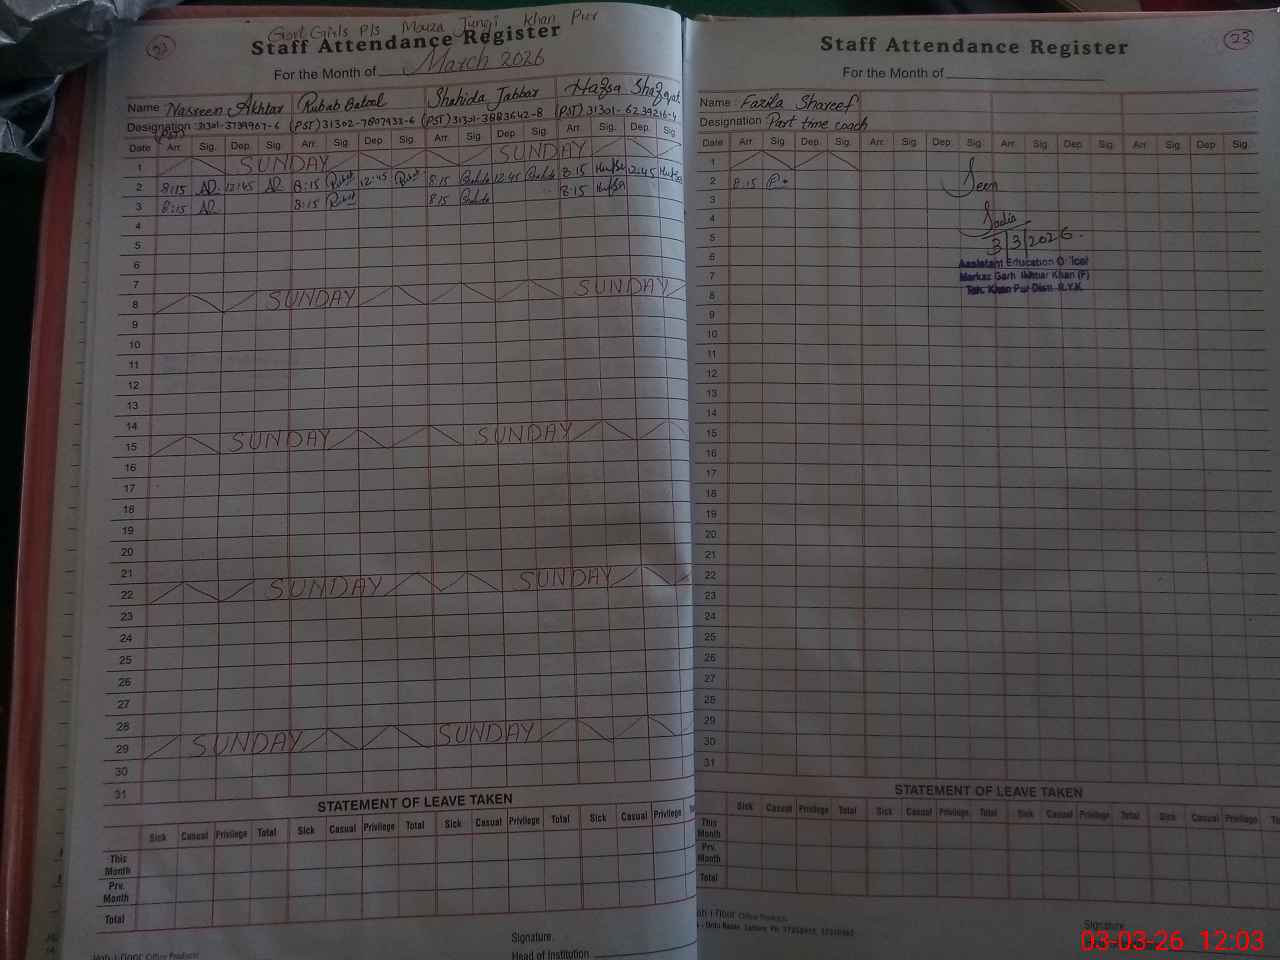 22
Govt Girls P/s Mouza Jungi Khan Pur
Staff Attendance Register
For the Month of March 2026
Name Nasreen Akhtar Rubab Batool Shahida Jabbar Hafsa Shafqat
Designation (PST) 31301-3739967-6 (PST) 31302-7807932-6 (PST) 31301-3883642-8 (PST) 31301-6239216-4
Date Arr. Sig. Dep. Sig. Arr. Sig. Dep. Sig. Arr. Sig. Dep. Sig. Arr. Sig. Dep. Sig.
1 SUNDAY SUNDAY
2 8:15 12:45 8:15 12:45 8:15 12:45 8:15 Hafsa 12:45 Hafsa
3 8:15 8:15 8:15 8:15 Hafsa
4
5
6
7
8 SUNDAY SUNDAY
9
10
11
12
13
14
15 SUNDAY SUNDAY
16
17
18
19
20
21
22 SUNDAY SUNDAY
23
24
25
26
27
28
29 SUNDAY SUNDAY
30
31
STATEMENT OF LEAVE TAKEN
Sick Casual Privilege Total Sick Casual Privilege Total Sick Casual Privilege Total Sick Casual Privilege
This Month
Prv. Month
Total
Signature
Head of Institution
23
Staff Attendance Register
For the Month of
Name Fazila Shareef
Designation Part time coach
Date Arr. Sig. Dep. Sig. Arr. Sig. Dep. Sig. Arr. Sig. Dep. Sig. Arr. Sig. Dep. Sig.
1
2 8:15
3
4
5
6
7
8
9
10
11
12
13
14
15
16
17
18
19
20
21
22
23
24
25
26
27
28
29
30
31
Seen
Sadia
3/3/2026.
Assistant Education Officer
Markaz Garhi Ikhtiar Khan (F)
Teh. Khan Pur Distt. R.Y.K
STATEMENT OF LEAVE TAKEN
Sick Casual Privilege Total Sick Casual Privilege Total Sick Casual Privilege Total Sick Casual Privilege
This Month
Prv. Month
Total
Signature
03-03-26 12:03